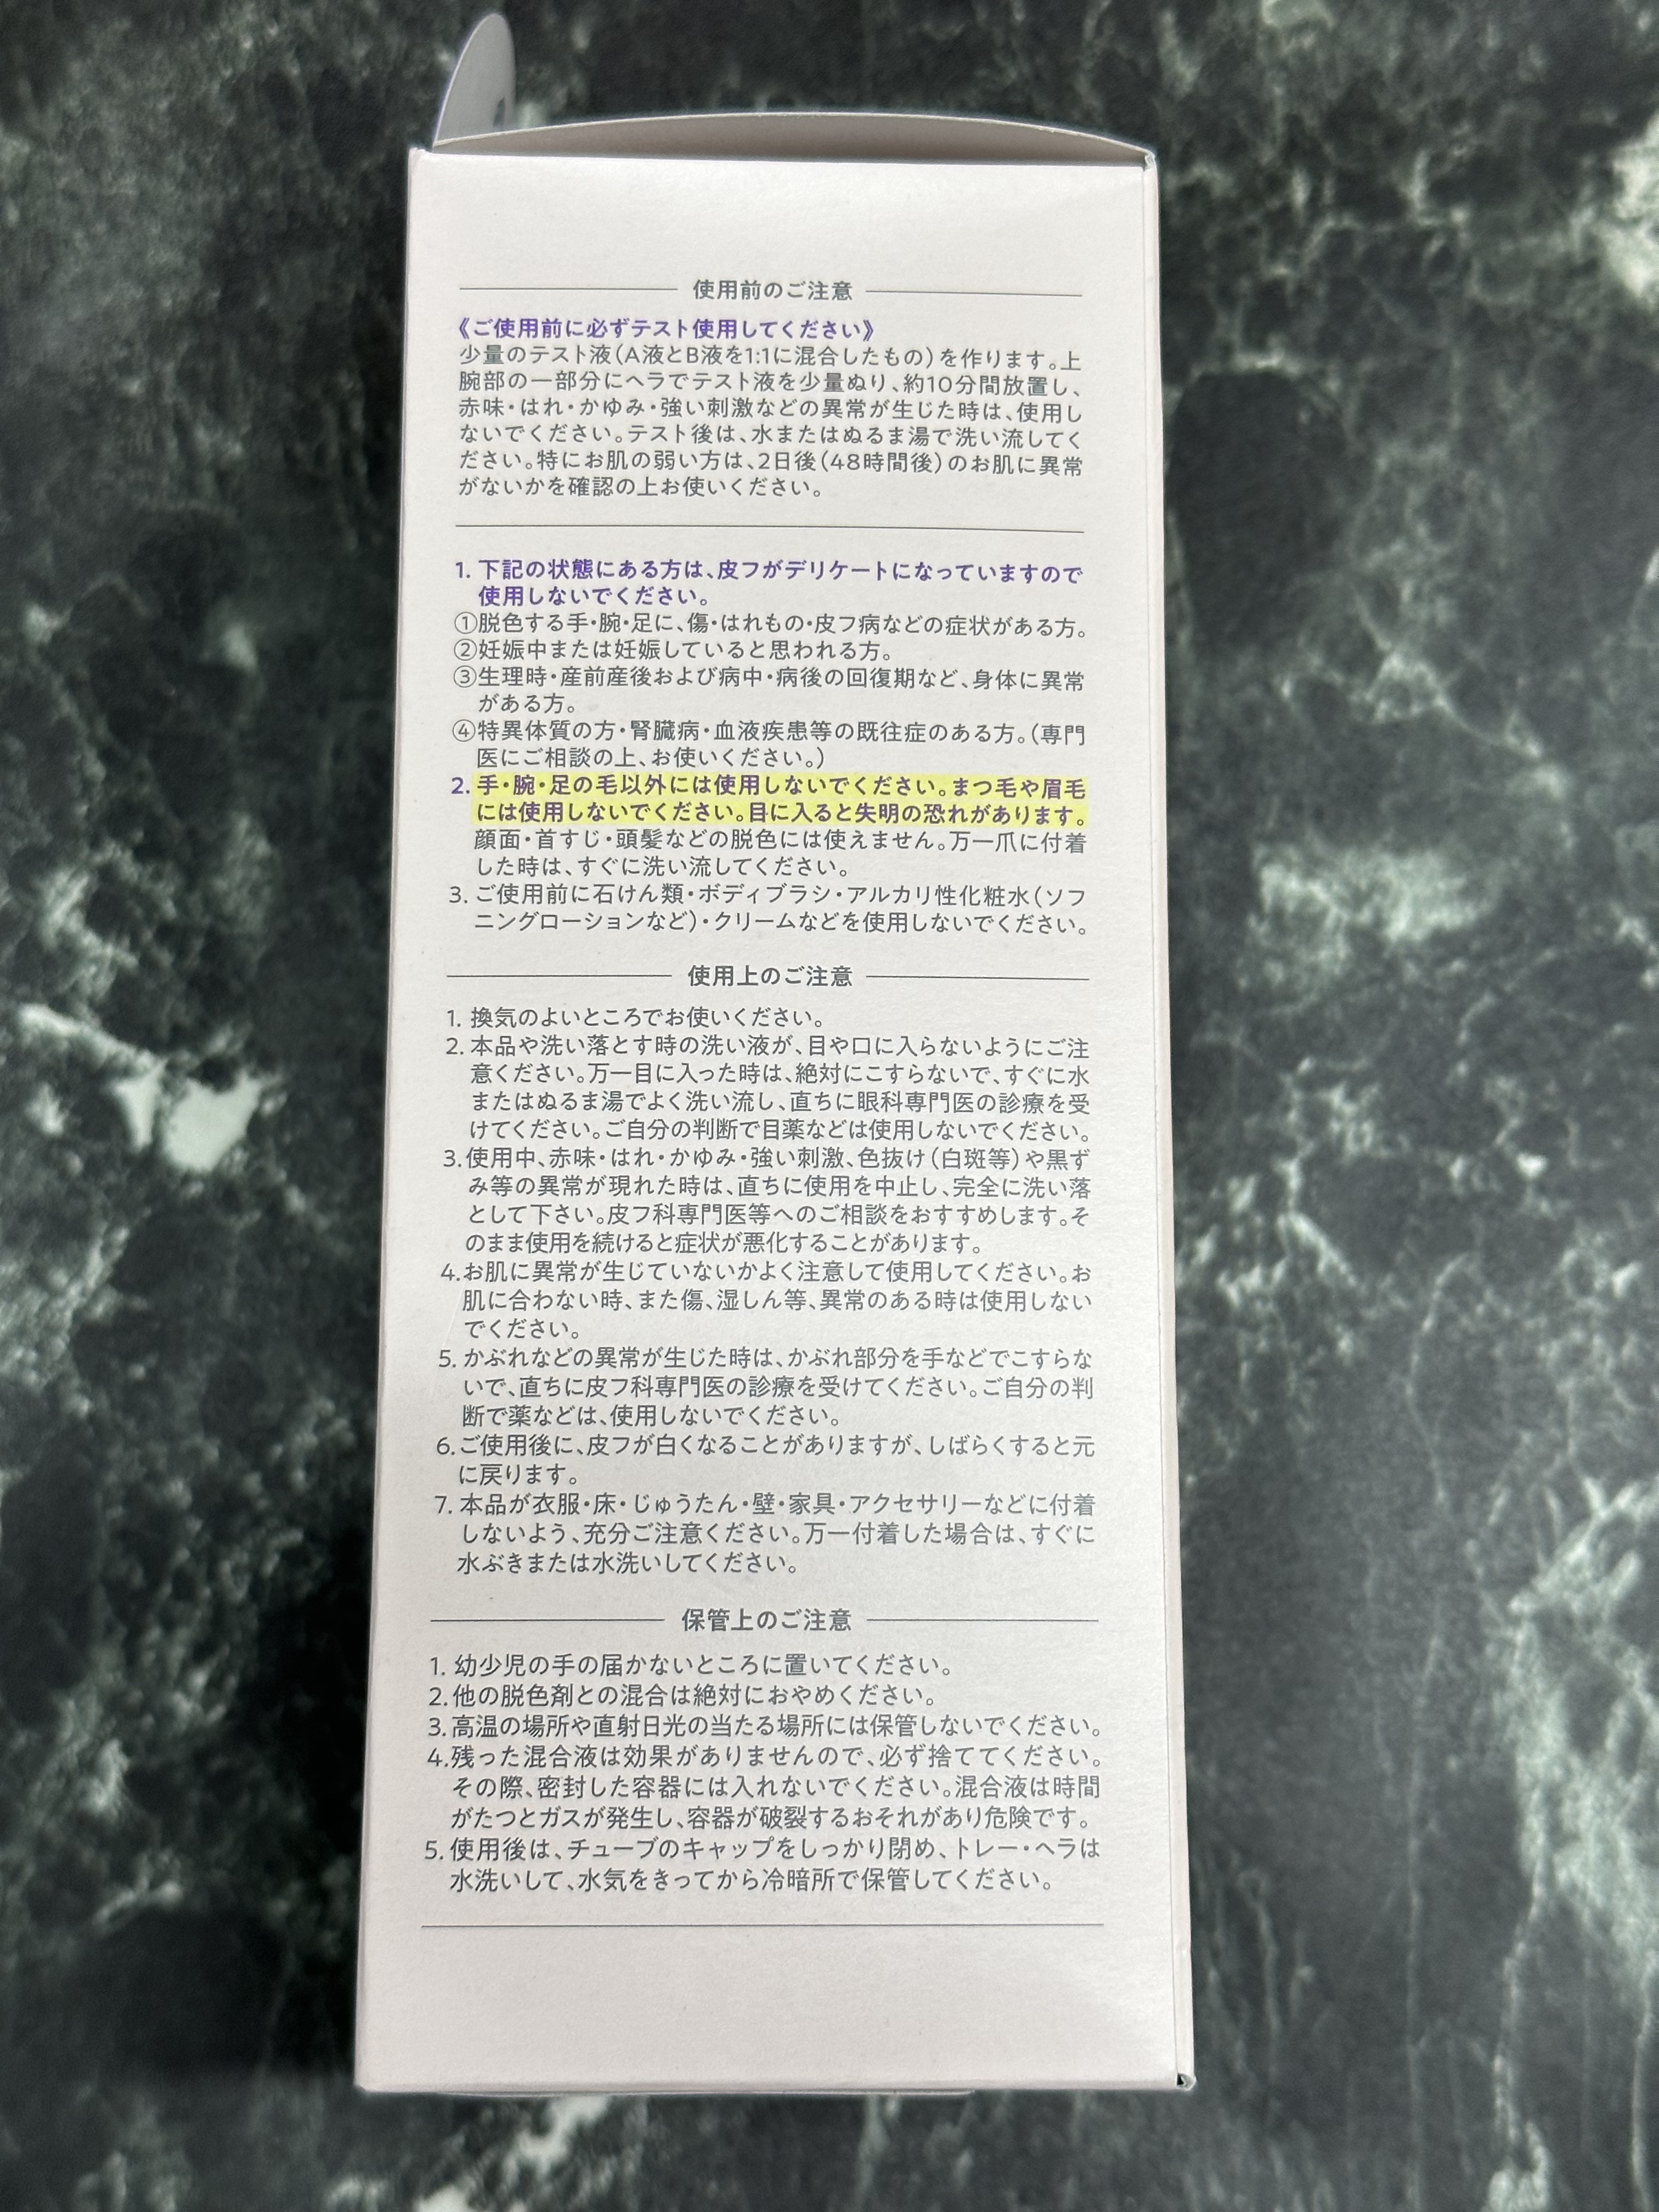 使用前のご注意
《ご使用前に必ずテスト使用してください》
少量のテスト液(A液とB液を1:1に混合したもの)を作ります。上
腕部の一部分にヘラでテスト液を少量ぬり、約10分間放置し、
赤味・はれ・かゆみ・強い刺激などの異常が生じた時は、使用し
ないでください。テスト後は、水またはぬるま湯で洗い流してく
ださい。特にお肌の弱い方は、2日後(48時間後)のお肌に異常
がないかを確認の上お使いください。
1. 下記の状態にある方は、皮フがデリケートになっていますので
使用しないでください。
①脱色する手・腕・足に、傷・はれもの・皮フ病などの症状がある方。
②妊娠中または妊娠していると思われる方。
③生理時・産前産後および病中・病後の回復期など、身体に異常
がある方。
④特異体質の方・腎臓病・血液疾患等の既往症のある方。(専門
医にご相談の上、お使いください。)
2. 手・腕・足の毛以外には使用しないでください。まつ毛や眉毛
には使用しないでください。目に入ると失明の恐れがあります。
顔面・首すじ・頭髪などの脱色には使えません。万一爪に付着
した時は、すぐに洗い流してください。
3. ご使用前に石けん類・ボディブラシ・アルカリ性化粧水(ソフ
ニングローションなど)・クリームなどを使用しないでください。
使用上のご注意
1. 換気のよいところでお使いください。
2. 本品や洗い落とす時の洗い液が、目や口に入らないようにご注
意ください。万一目に入った時は、絶対にこすらないで、すぐに水
またはぬるま湯でよく洗い流し、直ちに眼科専門医の診療を受
けてください。ご自分の判断で目薬などは使用しないでください。
3.使用中、赤味・はれ・かゆみ・強い刺激、色抜け(白斑等)や黒ず
み等の異常が現れた時は、直ちに使用を中止し、完全に洗い落
として下さい。皮フ科専門医等へのご相談をおすすめします。そ
のまま使用を続けると症状が悪化することがあります。
4.お肌に異常が生じていないかよく注意して使用してください。お
肌に合わない時、また傷、湿しん等、異常のある時は使用しない
でください。
5. かぶれなどの異常が生じた時は、かぶれ部分を手などでこすらな
いで、直ちに皮フ科専門医の診療を受けてください。ご自分の判
断で薬などは、使用しないでください。
6.ご使用後に、皮フが白くなることがありますが、しばらくすると元
に戻ります。
7. 本品が衣服・床・じゅうたん・壁・家具・アクセサリーなどに付着
しないよう、充分ご注意ください。万一付着した場合は、すぐに
水ぶきまたは水洗いしてください。
保管上のご注意
1. 幼少児の手の届かないところに置いてください。
2.他の脱色剤との混合は絶対におやめください。
3.高温の場所や直射日光の当たる場所には保管しないでください。
4.残った混合液は効果がありませんので、必ず捨ててください。
その際、密封した容器には入れないでください。混合液は時間
がたつとガスが発生し、容器が破裂するおそれがあり危険です。
5.使用後は、チューブのキャップをしっかり閉め、トレー・ヘラは
水洗いして、水気をきってから冷暗所で保管してください。